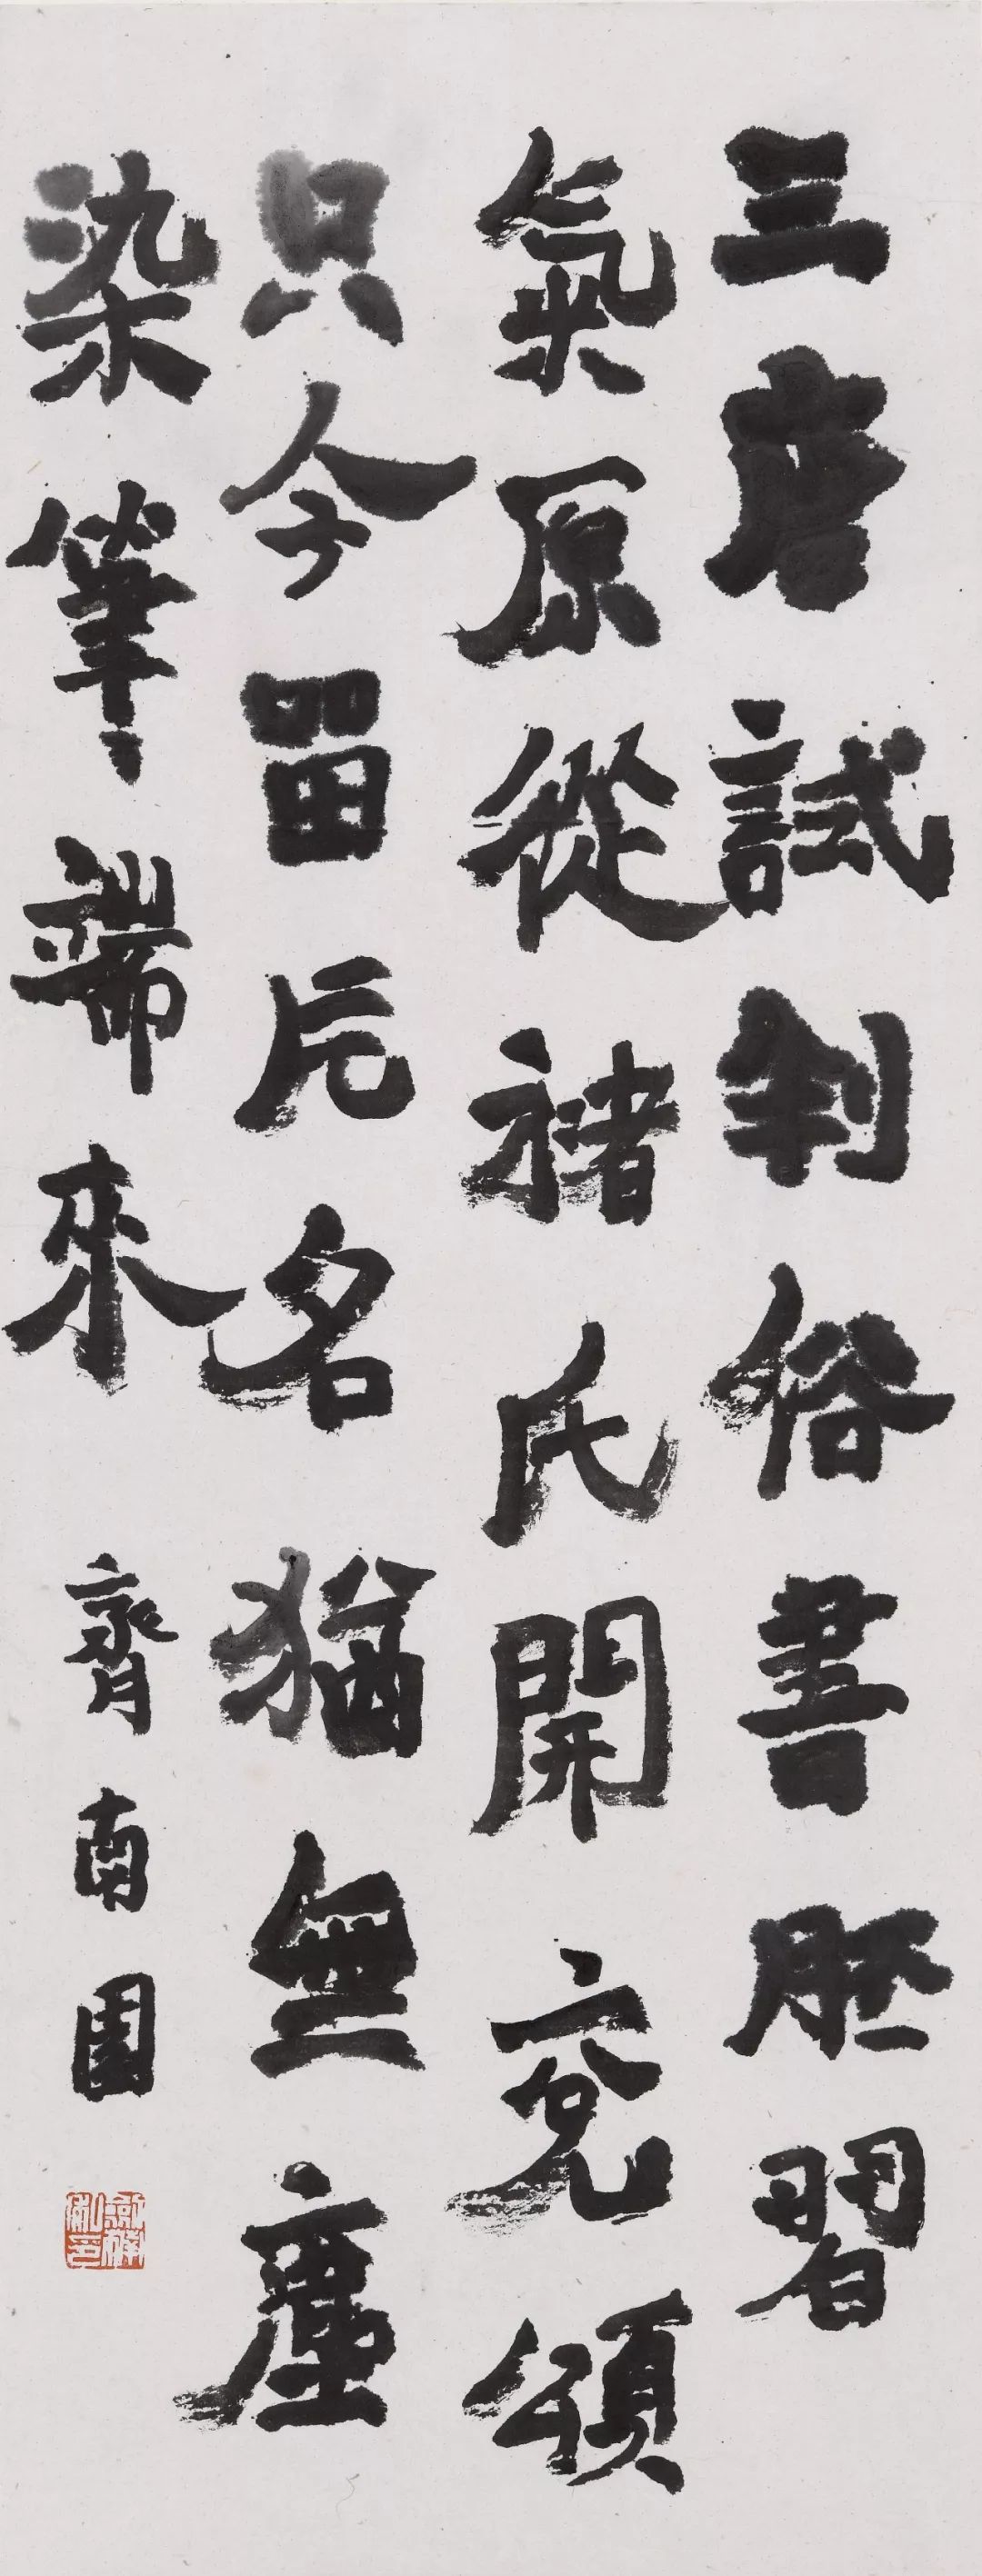 三唐試判俗書胚習
氣原從褚氏開兗頌
只今留名猶無塵
染筆端來 南園